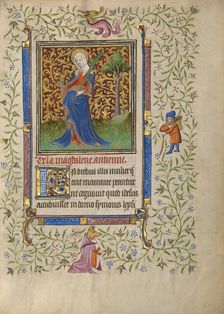 De la magdalene. antienne.
In diebus illis mulier q̄
erat in ciuitate peccatrix
ut cognouit quod ihesus
accubuisset in domo symonis lepſi